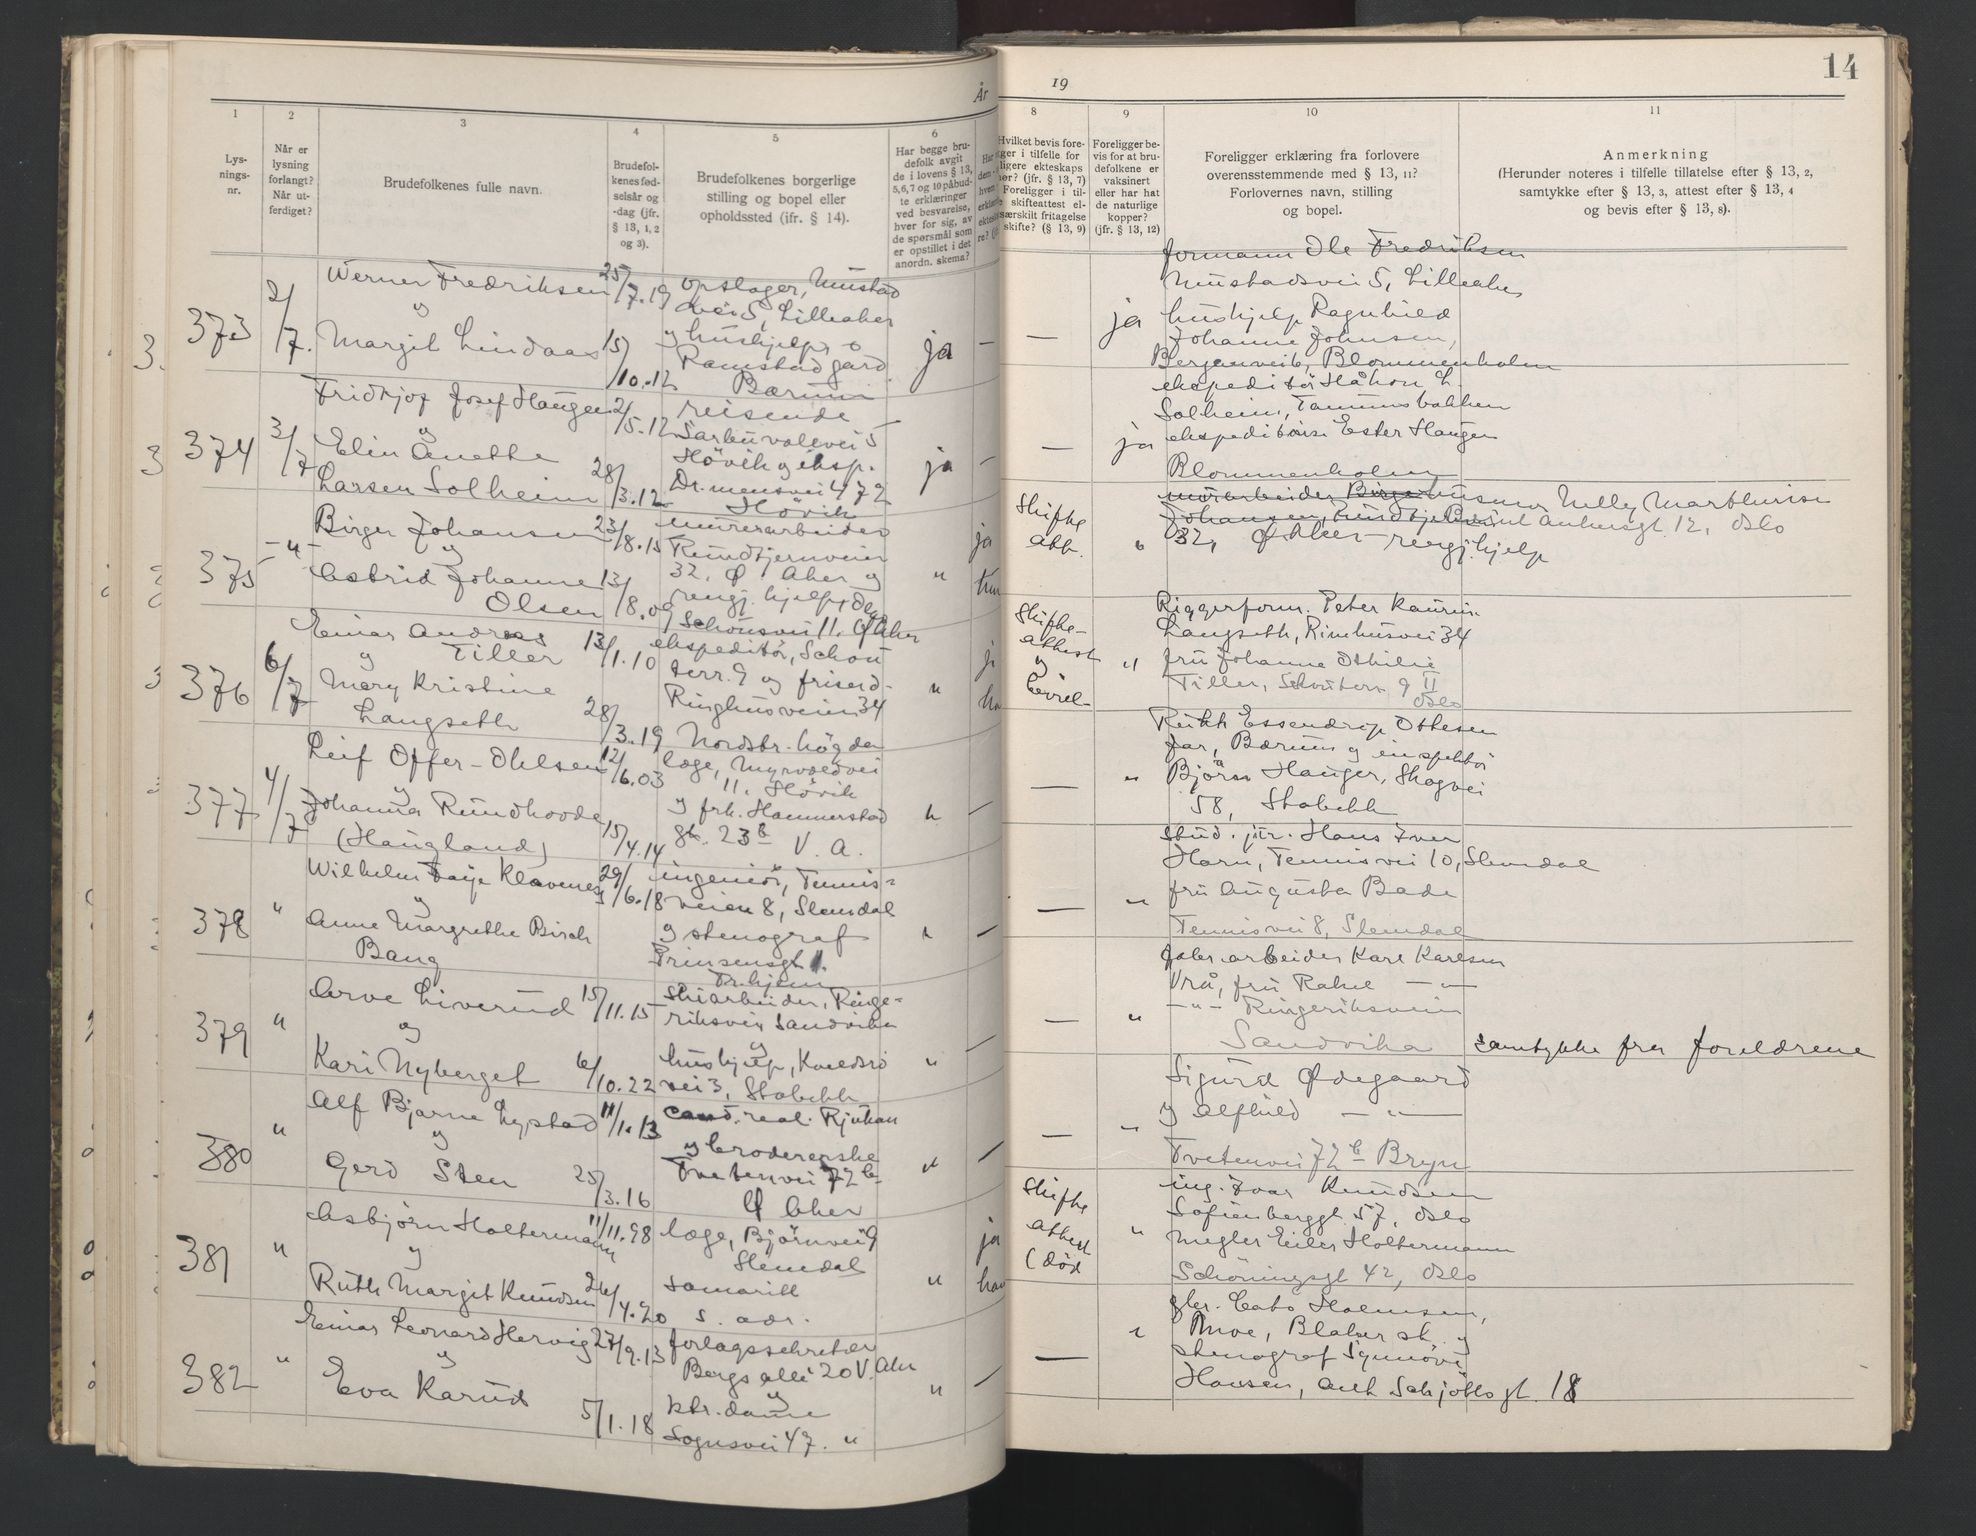 År
19
14
1
2
3
4
5
6
8
9
10
11
Lys-
nings-
nr.
Når er
lysning
forlangt?
Når ut-
ferdiget?
Brudefolkenes fulle navn.
Brudefol-
kenes fød-
selsår og
-dag (jfr.
§ 13, 1, 2
og 3).
Brudefolkenes borgerlige
stilling og bopel eller
opholdssted (ifr. § 14).
Har begge bru-
defolk avgit
de i lovens § 13,
5,6,7 og 10 påbud-
te erklæringer
ved besvarelse,
hver for sig, av
de spørsmål som
er opstillet i det
anordn. skema?
Hvilket bevis fore-
ger i tilfelle for
ligere ekteskaps
ør? (jfr. § 13, 7)
Foreligger i til-
skifteattest el-
særskilt fritagelse
skifte? (§ 13, 9)
Foreligger be-
vis for at bru-
defolkene er
vaksinert
eller har hat
de naturlige
kopper?
(jfr. § 13, 12)
Foreligger erklæring fra forlovere
overensstemmende med § 13, 11?
Forlovernes navn, stilling
og bopel.
Anmerkning
(Herunder noteres i tilfelle tillatelse efter § 13, 2,
samtykke efter § 13, 3, attest efter § 13, 4
og bevis efter § 13, 8).
373
2/7.
Werner Fredriksen
og
Margit Lindaas
25/7.19
15/10.12
opslager, Mustad
vei 5, Lilleaker
og hushjelp
Ramstad gård
Bærum
ja
—
—
ja
formann Ole Fredriksen
Mustadsvei 5, Lilleaker
hushjelp Ragnhild
Johanne Johnsen,
Blommenholm
374
3/7
Fridtjof Josef Haugen
og
Elin Anette
Larsen Solheim
2/5.12
28/3.12
reisende
Høvik og eksp.
Dr.mensvei 472
Høvik
ja
—
—
ja
ekspeditør Håkon L.
Solheim, Tanumsbakken
ekspeditrise Ester Haugen
Blommenholm
375
-"-
Birger Johansen
og
Astrid Johanne
Olsen
23/8.15
13/8.09
murerarbeider
Rundtjernveien
32, Ø. Aker og
rengj. hjelp
Schousvei 11. Ø Aker
"
ja
Skifte
att.
"
murarbeider Birger
Johansen, Rundtjernvei
32, Ø Aker - rengj.hjelp
husmor Nelly
gt. 12, Oslo
376
6/7
Einar Andreas
Tiller
og
Mary Kristine
Langseth
13/1.10
28/3.19
ekspeditør, Schou
terr. 9 og friserd-
Ringhusveien 34
Nordstr. høgda
"
Skifte-
attest
og
bevil-
"
Riggerform. Peter
Langseth, 34
fru Johanne Othilie
Tiller, Schouterr. 9 II
Oslo
377
4/7
Leif Offer-Ohlsen
og
Johanna Rundhovde
(Haugland)
12/6.03
15/4.14
læge, Myrvoldvei
11, Høvik
og frk. Hammerstad
gt. 23 b V. A.
"
—
"
Ruth Essendrop Ottesen
Jar, Bærum og inspektør
Bjørn Hauger, Skogvei
58, Stabekk
378
"
Wilhelm Klavenes
og
Anne Margrethe Birch
Bang
29/6.18
ingeniør, Tennis-
veien 8, Slemdal
og stenograf
Prinsensgt 1.
Tr.hjem
"
—
—
"
stud. jur. Hans Iver
Horn, Tennisvei 10, Slemdal
fru Augusta Bade
Tennisvei 8, Slemdal
379
"
Arve Liverud
og
Kari Nyberget
15/11.15
6/10.22
skiarbeider, Ringe-
riksvei, Sandvika
og
hushjelp, Kveldsro
vei 3, Stabekk
"
—
"
arbeider Karl Karlsen
Vrå, fru Rakel -"-
-"- Ringeriksveien
Sandvika
samtykke fra foreldrene
380
"
Alf Bjarne Lystad
og
Gerd Sten
11/1.13
25/3.16
cand. real. Rjukan
og broderерske
Tvetenvei 72 b
Ø Aker
"
—
—
"
Sigurd Ødegaard
og Alfhild -"-
Tvetenvei 72 b Bryn
381
"
Asbjørn Holtermann
og
Ruth Margit Knudsen
11/11.98
26/4.20
læge, Bjørnvei 9
Slemdal
samaritt
s. adr.
"
ja
Skifte
attest
(død
"
ing. Ivar Knudsen
Sofienberggt 57, Oslo
megler Eiler Holtermann
Schøningsgt 42, Oslo
382
"
Einar Leonard Hervig
og
Eva Karud
27/9.13
5/1.18
forlagssekretær
Bergs allé 20 V. Aker
og
ktr. dame
Sognsvei 47. "
"
—
—
"
Cato Holmsen,
Moe, Blaker st. og
stenograf Synnøve
Hansen, Anth Schjøttsgt. 18